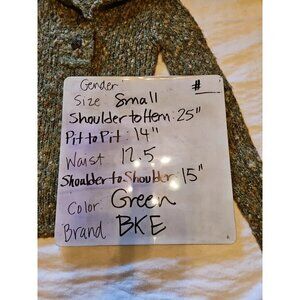 Gender #
Size Small
Shoulder to Hem: 25"
Pit to Pit: 14"
Waist 12.5
Shoulder to Shoulder: 15"
Color: Green
Brand BKE